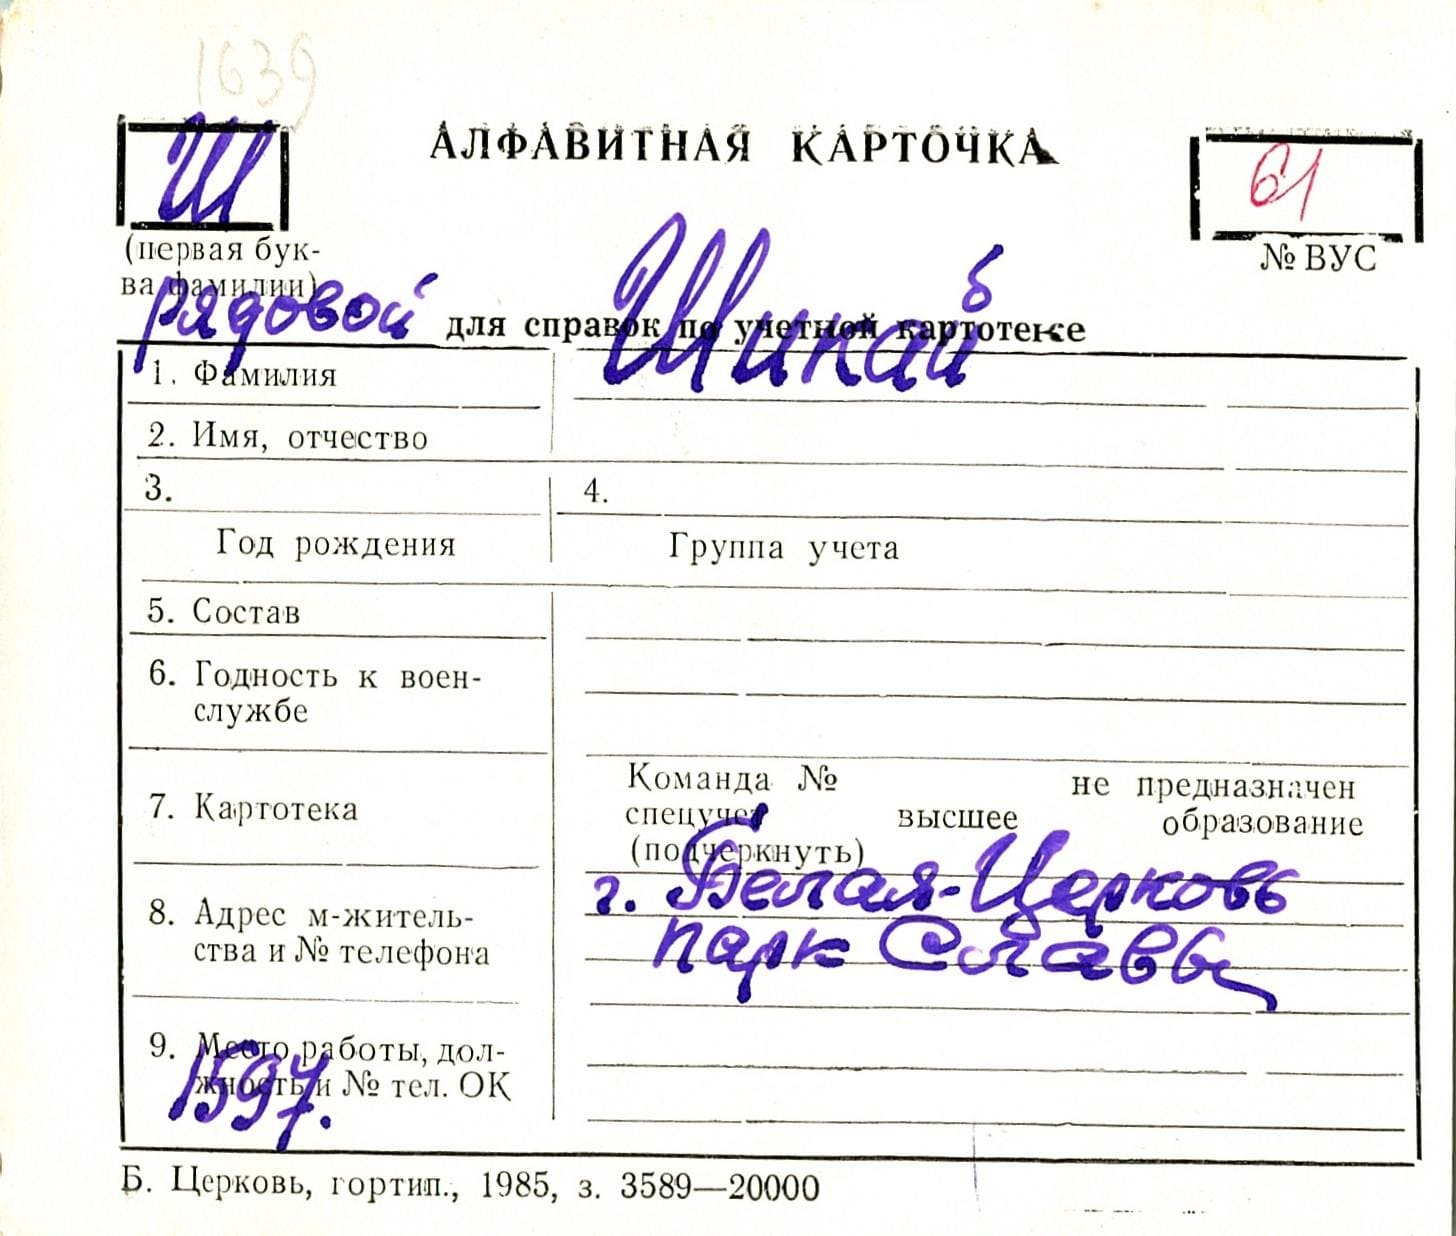 1639
Ш
АЛФАВИТНАЯ КАРТОЧКА
61
(первая бук-
ва фамилии)
№ ВУС
рядовой
для справок по учетной картотеке
1. Фамилия
Шикай
2. Имя, отчество
3. 4.
Год рождения Группа учета
5. Состав
6. Годность к воен-
службе
7. Картотека
Команда № не предназначен
спецучет высшее образование
(подчеркнуть)
8. Адрес м-житель-
ства и № телефона
г. Белая-Церковь
парк Славы
9. Место работы, дол-
жность и № тел. ОК
1597.
Б. Церковь, гортип., 1985, з. 3589—20000